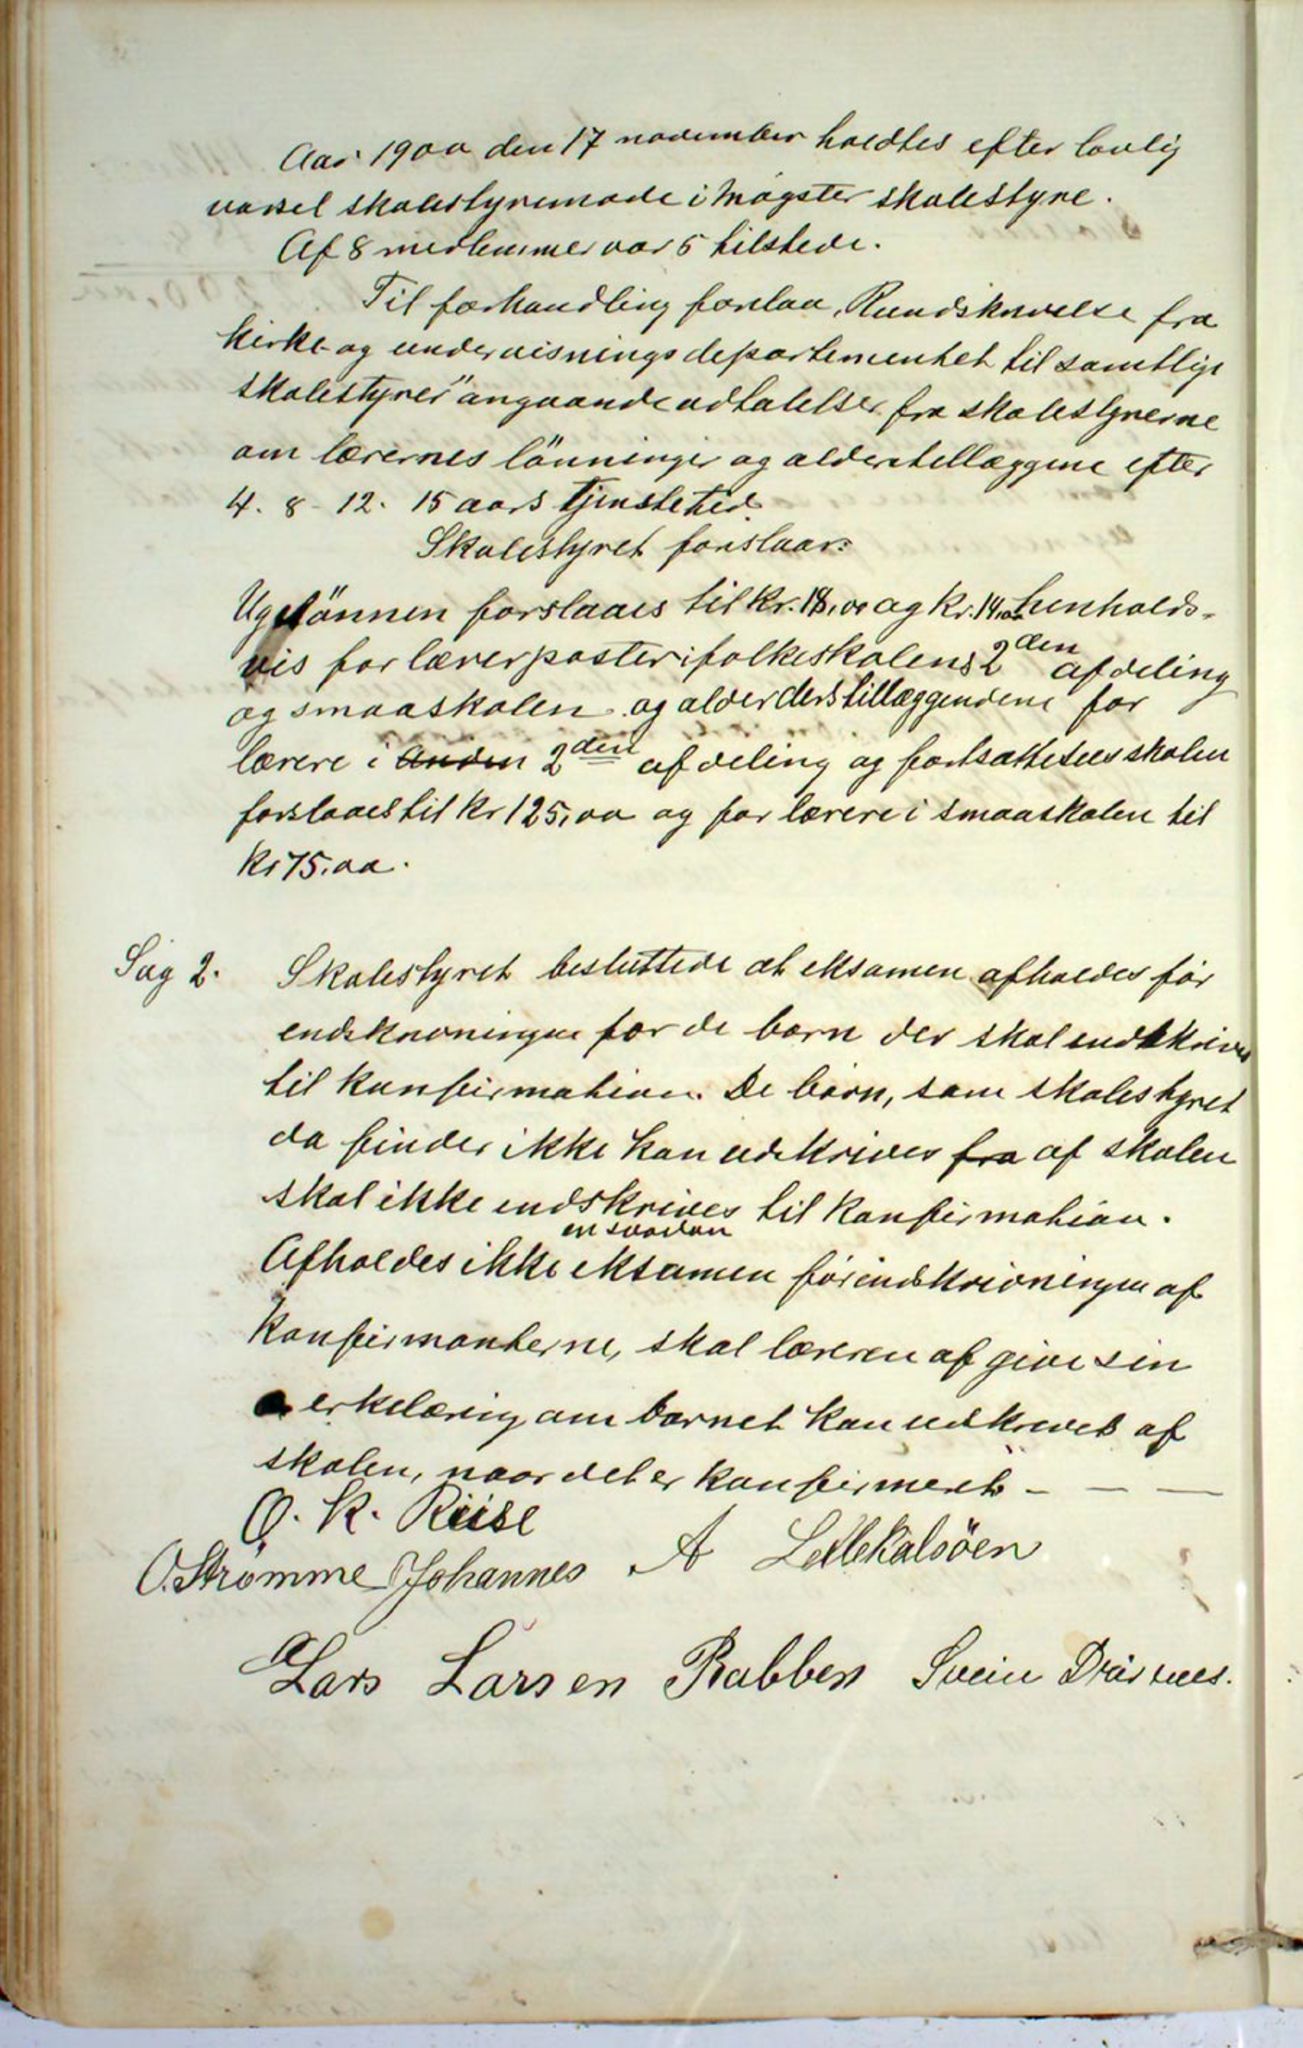 Aar 1900 den 17 november holdtes efter lovlig
varsel skolestyremøde i Møgster skolestyre.
Af 8 medlemmer var 5 tilstede.
Til forhandling forelaa, Rundskrivelse fra
kirke- og undervisningsdepartementet til samtlige
skolestyrer" angaaende udtalelser fra skolestyrerne
om lærernes lönninger og alderstillæggene efter
4. 8 - 12. 15 aars tjenstetid.
Skolestyret foreslaar:
Ugelönnen forslaaes til kr. 18,00 og kr. 14,00 henholds-
vis for lærerposter i folkeskolens 2den afdeling
og smaaskolen og alderderstillæggendene for
lærere i anden 2den afdeling og fortsættelsesskolen
forslaaes til kr 125,00 og for lærere i smaaskolen til
kr 75.00.
Sag 2. Skolestyret besluttede at eksamen afholdes før
indskrivningen for de børn der skal indskrives
til konfirmation. De børn, som skolestyret
da finder ikke kan udskrives fra af skolen
skal ikke indskrives til konfirmation.
en saadan
Afholdes ikke eksamen før indskrivningen af
konfirmanterne, skal læreren afgive sin
erkelæring om barnet kan udskrives af
skolen, naar det er konfirmert - - -
O. K. Riise
O. Strømme Johannes A Lillekalsöen
Lars Larsen Rabben Svein